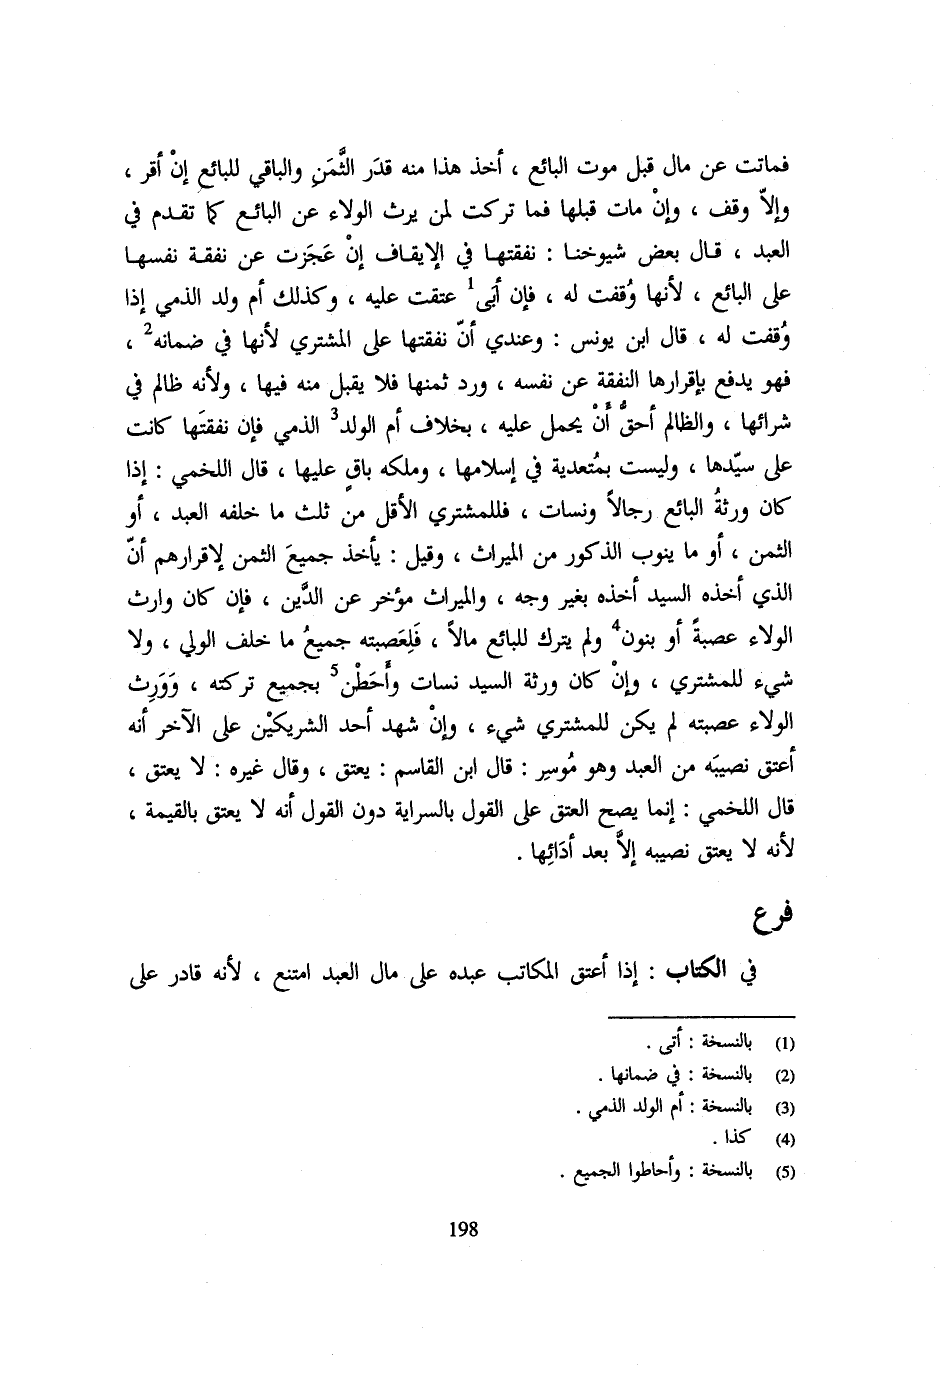 فماتت عن مال قبل موت البائع ، أخذ هذا منه قدَر الثَّمَنِ والباقي للبائع إنْ أقر ،
وإلاّ وقف ، وإنْ مات قبلها فما تركت لمن يرث الولاء عن البائع كما تقدم في
العبد ، قال بعض شيوخنا : نفقتها في الإيقاف إنْ عَجَزت عن نفقة نفسها
على البائع ، لأنها وُقفت له ، فإن أبَى1 عتقت عليه ، وكذلك أم ولد الذمي إذا
وُقفت له ، قال ابن يونس : وعندي أنّ نفقتها على المشتري لأنها في ضمانه2 ،
فهو يدفع بإقرارها النفقة عن نفسه ، ورد ثمنها فلا يقبل منه فيها ، ولأنه ظالم في
شرائها ، والظالم أحقُّ أَنْ يحمل عليه ، بخلاف أم الولد3 الذمي فإن نفقتَها كانت
على سيّدها ، وليست بمُتعدية في إسلامها ، وملكه باقٍ عليها ، قال اللخمي : إذا
كان ورثةُ البائع رجالاً ونسات ، فللمشتري الأقل من ثلث ما خلفه العبد ، أو
الثمن ، أو ما ينوب الذكور من الميراث ، وقيل : يأخذ جميعَ الثمن لإقرارهم أنّ
الذي أخذه السيد أخذه بغير وجه ، والميراث مؤخر عن الدَّين ، فإن كان وارث
الولاء عصبةً أو بنون4 ولم يترك للبائع مالاً ، فَلِعَصبته جميعُ ما خلف الولي ، ولا
شيء للمشتري ، وإنْ كان ورثة السيد نسات وأَحَطْن5 بجميع تركته ، وَوَرِث
الولاء عصبته لم يكن للمشتري شيء ، وإنْ شهد أحد الشريكيْن على الآخر أنه
أعتق نصيبَه من العبد وهو مُوسِر : قال ابن القاسم : يعتق ، وقال غيره : لا يعتق ،
قال اللخمي : إنما يصح العتق على القول بالسراية دون القول أنه لا يعتق بالقيمة ،
لأنه لا يعتق نصيبه إلاَّ بعد أدَائِها .
فرع
في الكتاب : إذا أعتق المكاتب عبده على مال العبد امتنع ، لأنه قادر على
(1) بالنسخة : أتى .
(2) بالنسخة : في ضمانها .
(3) بالنسخة : أم الولد الذمي .
(4) كذا .
(5) بالنسخة : وأحاطوا الجميع .
198